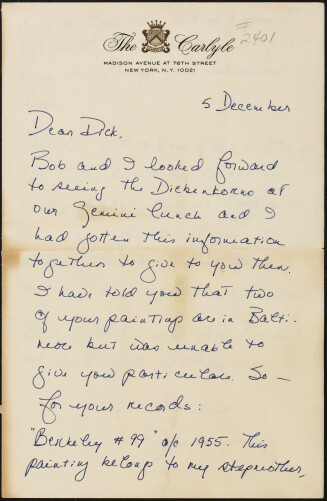 The Carlyle
MADISON AVENUE AT 76TH STREET
NEW YORK, N.Y. 10021
2401
5 December
Dear Dick,
Bob and I looked forward
to seeing the Diebenkorns at
our Gemini lunch and I
had gotten this information
together to give to you then.
I have told you that two
of your paintings are in Balti-
more but was unable to
give you particulars. So –
for your records:
"Berkeley # 99" o/c 1955. This
painting belongs to my stepmother,